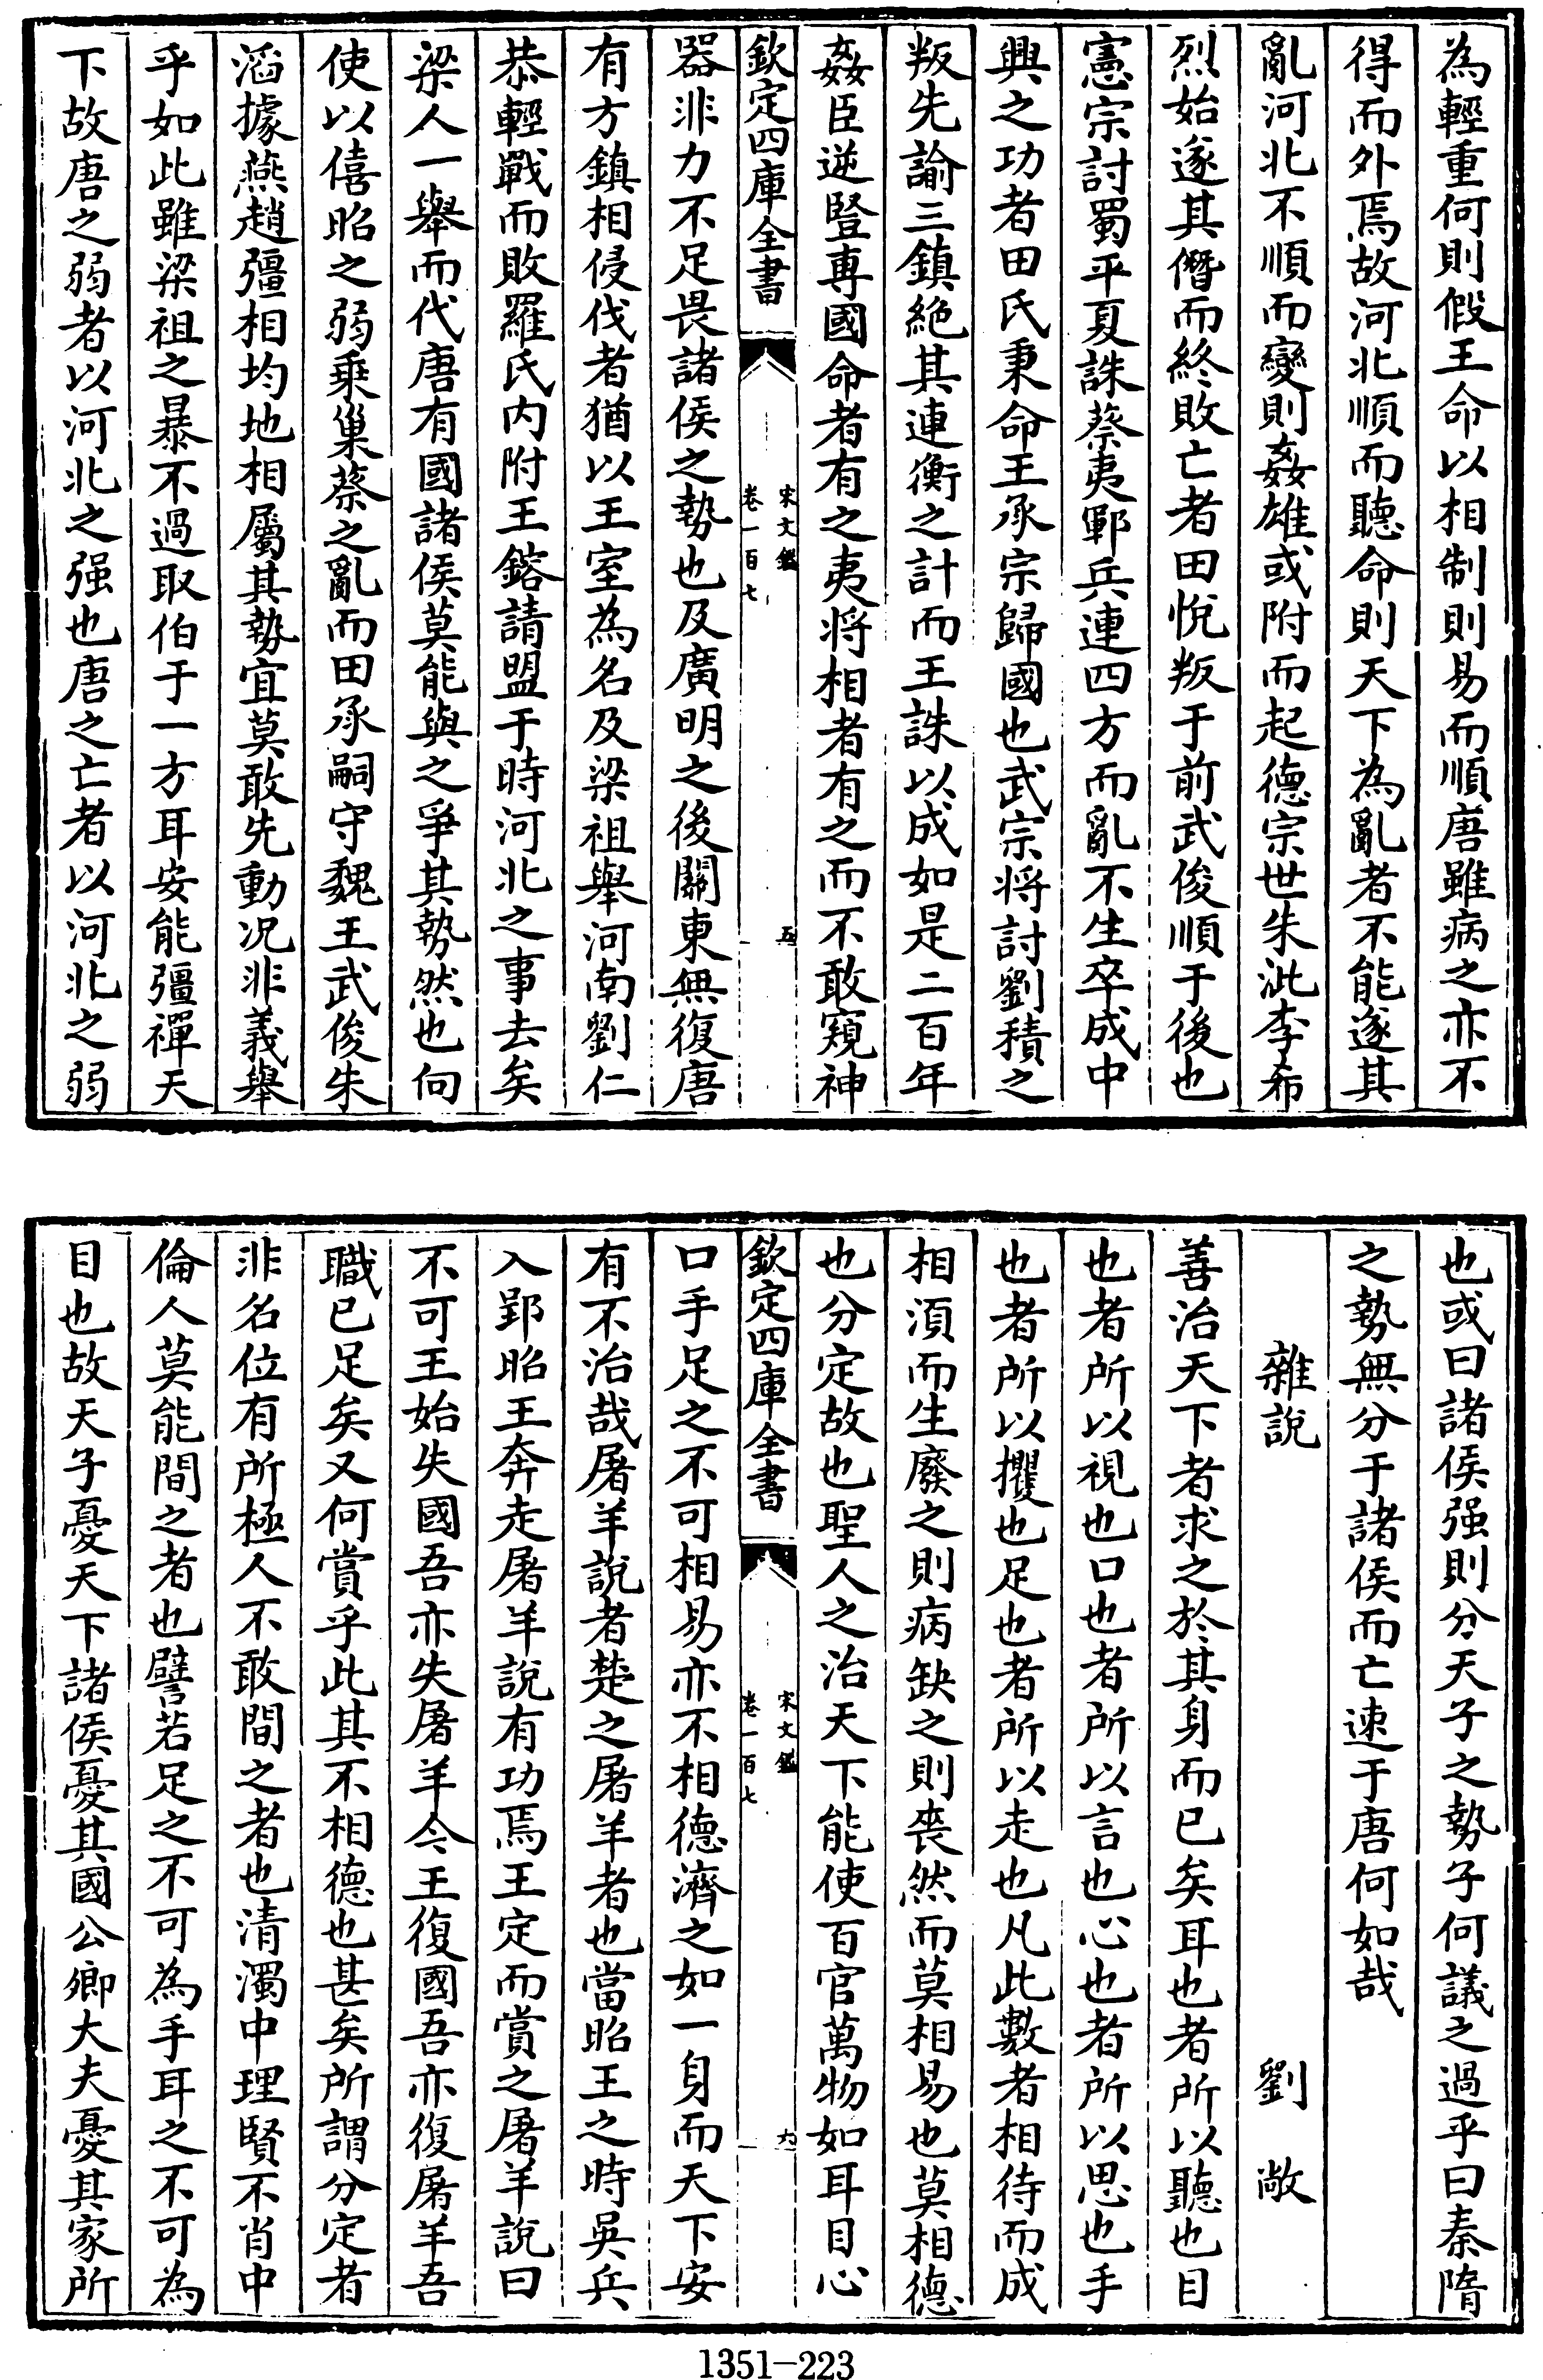 為輕重何則假王命以相制則易而順唐雖病之亦不
得而外焉故河北順而聽命則天下為亂者不能遂其
亂河北不順而變則姦雄或附而起德宗世朱泚李希
烈始遂其僭而終敗亡者田悅叛于前武俊順于後也
憲宗討蜀平夏誅蔡夷鄆兵連四方而亂不生卒成中
興之功者田氏秉命王承宗歸國也武宗將討劉積之
叛先諭三鎮絶其連衡之計而王誅以成如是二百年
姦臣逆豎專國命者有之夷将相者有之而不敢窺神
欽定四庫全書
宋文鑑
卷一百七
五
器非力不足畏諸侯之勢也及廣明之後關東無復唐
有方鎮相侵伐者猶以王室為名及梁祖舉河南劉仁
恭輕戰而敗羅氏内附王鎔請盟于時河北之事去矣
梁人一舉而代唐有國諸侯莫能與之爭其勢然也向
使以僖昭之弱乗巢蔡之亂而田承嗣守魏王武俊朱
滔據燕趙彊相均地相屬其勢宜莫敢先動况非義舉
乎如此雖梁祖之暴不過取伯于一方耳安能彊禪天
下故唐之弱者以河北之强也唐之亡者以河北之弱
也或曰諸侯强則分天子之勢子何議之過乎曰秦隋
之勢無分于諸侯而亡速于唐何如哉
雜說
劉敞
善治天下者求之於其身而已矣耳也者所以聽也目
也者所以視也口也者所以言也心也者所以思也手
也者所以攫也足也者所以走也凡此數者相待而成
相須而生廢之則病缺之則喪然而莫相易也莫相德
也分定故也聖人之治天下能使百官萬物如耳目心
欽定四庫全書
宋文鑑
卷一百七
六
口手足之不可相易亦不相德濟之如一身而天下安
有不治哉屠羊說者楚之屠羊者也當昭王之時吳兵
入郢昭王奔走屠羊說有功焉王定而賞之屠羊說曰
不可王始失國吾亦失屠羊今王復國吾亦復屠羊吾
職已足矣又何賞乎此其不相德也甚矣所謂分定者
非名位有所極人不敢間之者也清濁中理賢不肖中
倫人莫能間之者也譬若足之不可為手耳之不可為
目也故天子憂天下諸侯憂其國公卿大夫憂其家所
1351-223